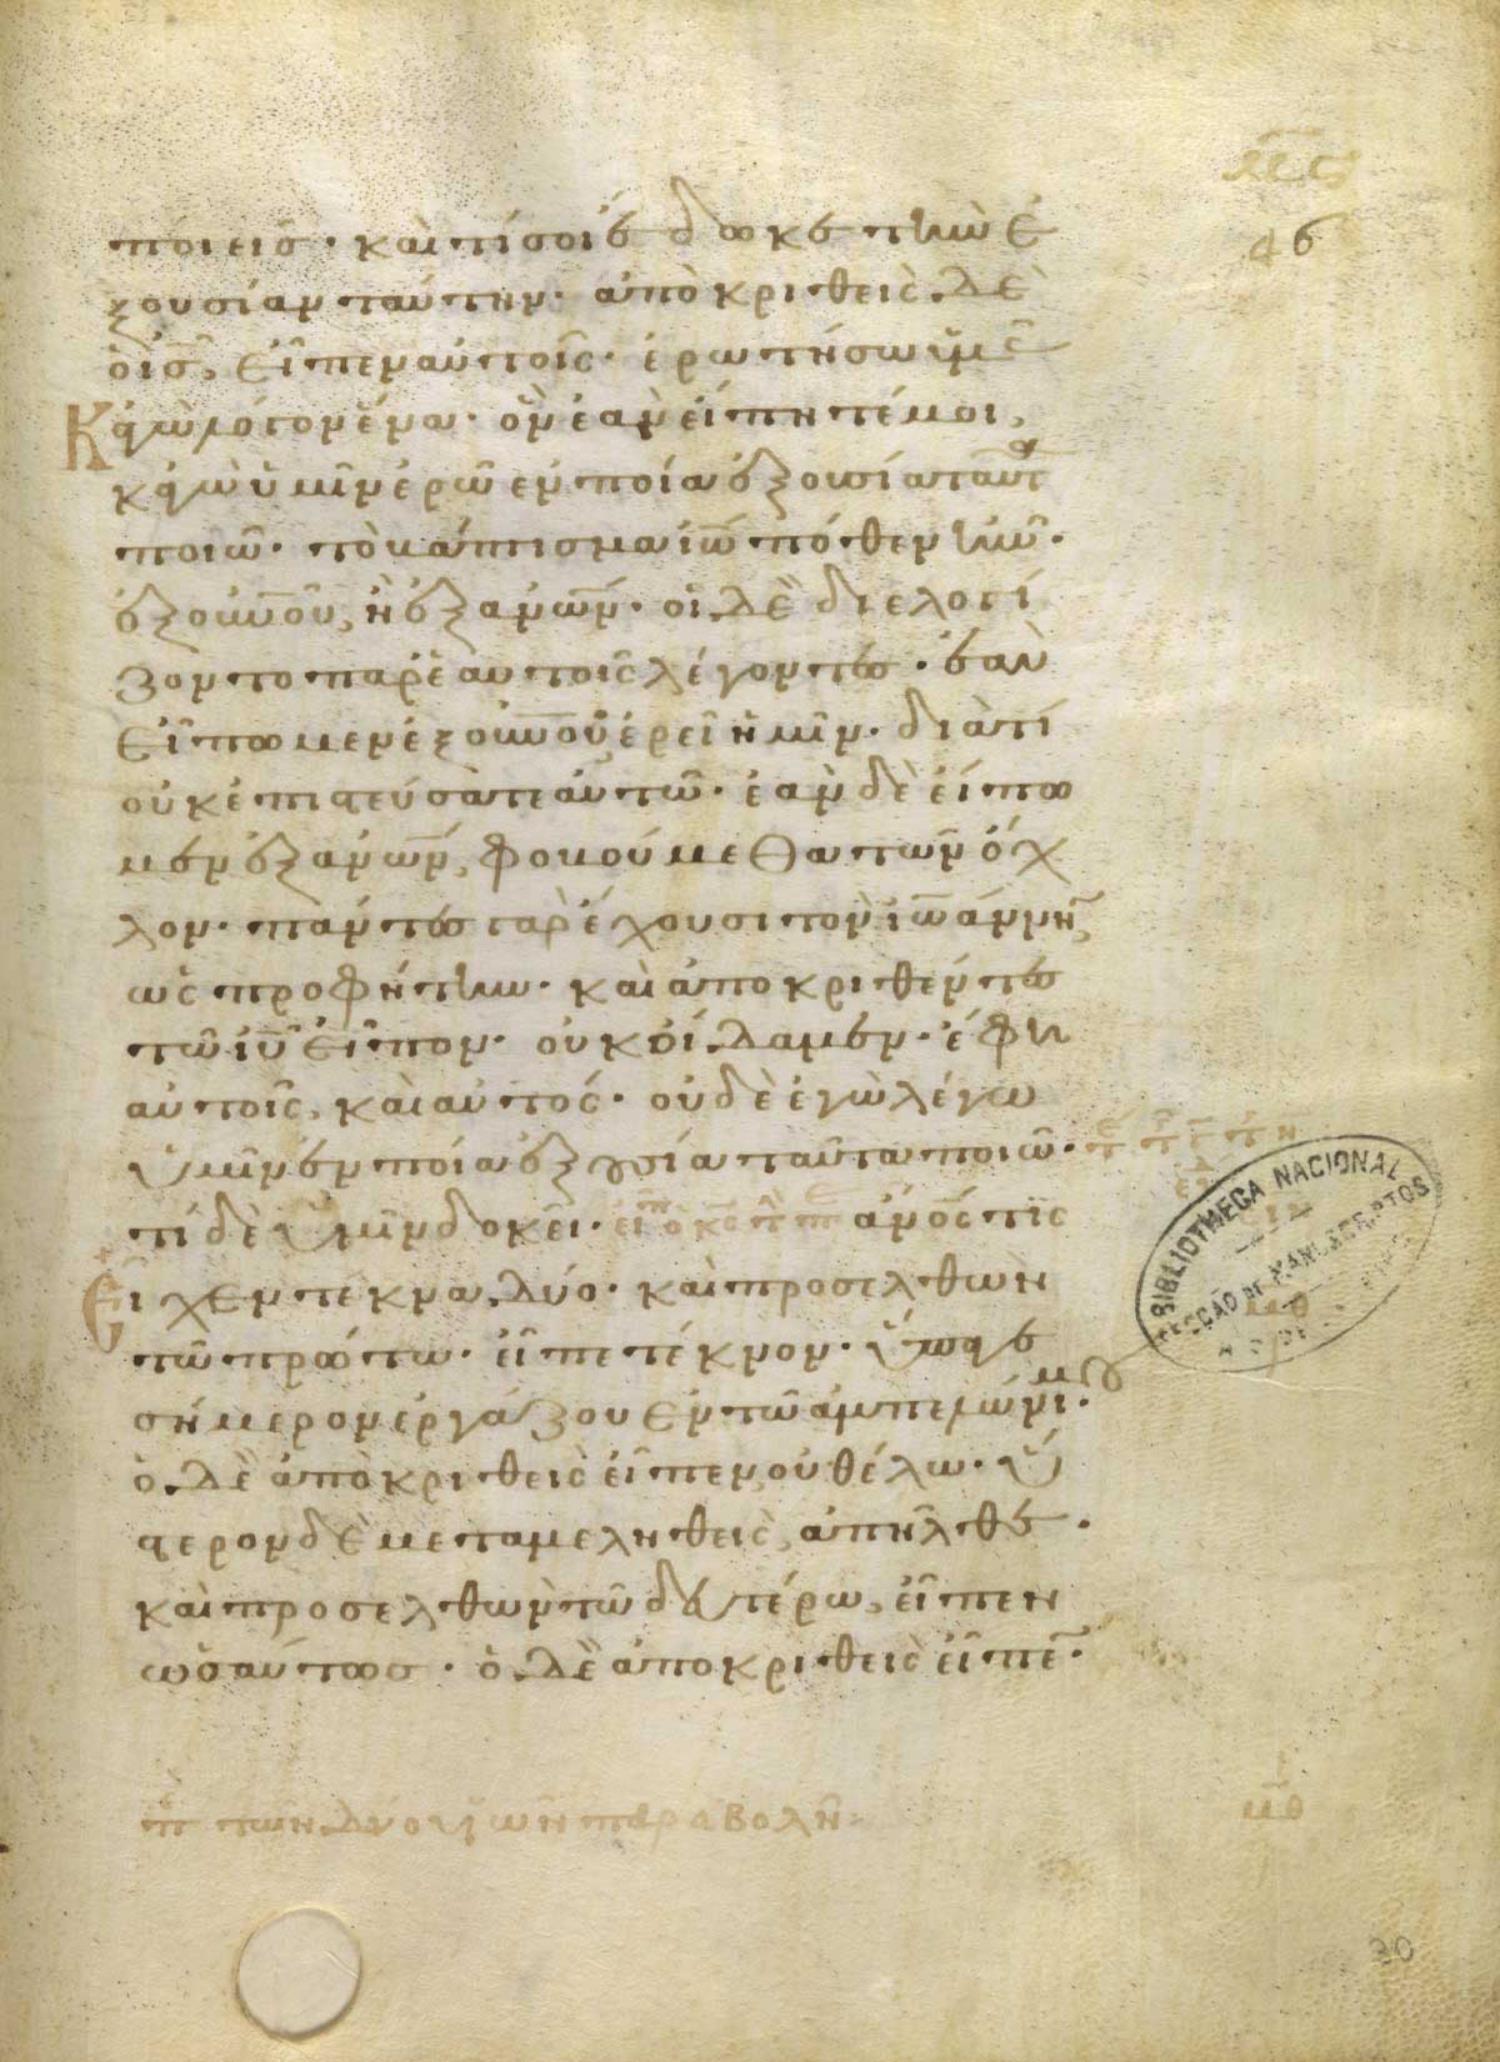 46
ποιεῖσ· καὶ τίσοι ἔδωκε τὴν ἐ
ξουσίαν ταύτην· ἀπὸκριθεὶς δὲ
ὁ ις̅, εἶπεν αὐτοῖς· ἐρωτήσω ὑμᾶς
Κἀγὼ λόγον ἕνα· ὃν ἐὰν εἴπητέ μοι,
κἀγὼ ὑμῖν ἐρῶ ἐν ποία ἐξουσία ταῦτα
ποιῶ· τὸ βάπτισμα ιω̅ πόθεν ἦν·
ἐξ οὐνοῦ, ἢ ἐξ ἀνων· οἱ δὲ διελογί
ζοντο παρ' ἑαυτοῖς λέγοντες· ἐὰν
εἴπωμεν ἐξ οὐνοῦ, ἐρεῖ ἡμῖν· διὰτί
οὐκ ἐπιστεύσατε αὐτῶ· ἐὰν δὲ εἴπω
μεν ἐξ ἀνων, φοβούμεθα τὼν ὄχ
λον· πάντες γὰρ ἔχουσι τὸν ἰωάννην
ὡς προφήτην· καὶ ἀποκριθέντες
τῶ ιυ̅ εἶπον· οὐκ οἴδαμεν· ἔφη
αὐτοῖς, καὶ αὐτός· οὐδὲ ἐγὼ λέγω
ὑμῖν ἐν ποία ἐξουσία ταῦτα ποιῶ·
τί δὲ ὑμῖν δοκεῖ· ἀνος τις
Εἶχεν τέκνα δύο· καὶ προσελθὼν
τῶ πρώτω· εἶπε τέκνον· ὕπαγε
σήμερον ἐργάζου ἐν τῶ ἀμπελῶνι μου·
ὁ δὲ ἀπὸκριθεὶς εἶπεν, οὐ θέλω· ὕ
στερον δὲ μεταμεληθεὶς, ἀπῆλθε·
καὶ προσελθὼν τῶ δευτέρω, εἶπεν
ὡσαύτωσ· ὁ δὲ ἀποκριθεὶς εἶπε·
BIBLIOTHECA NACIONAL
SECÇÃO DE MANUSCRIPTOS
μθ
π τῶν δύο υἱῶν παραβολὴν
μθ
30